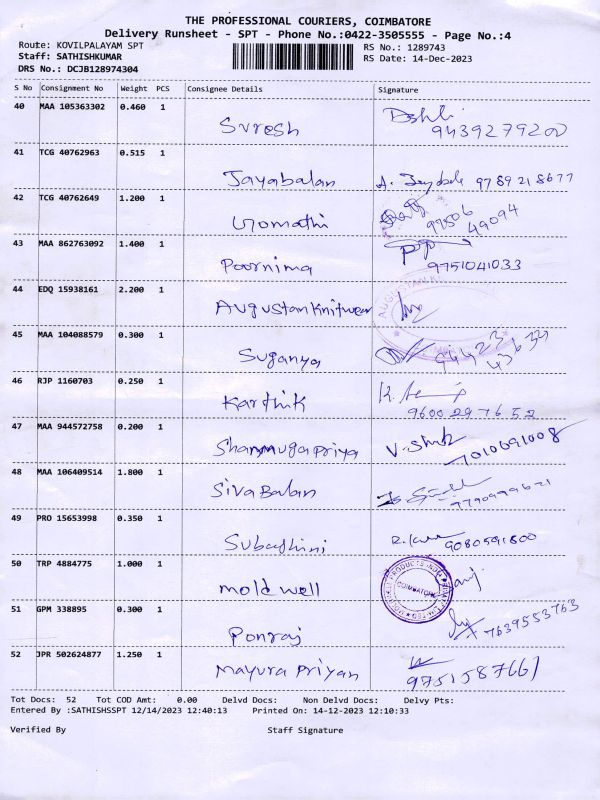 THE PROFESSIONAL COURIERS, COIMBATORE
Delivery Runsheet - SPT - Phone No.:0422-3505555 - Page No.:4
Route: KOVILPALAYAM SPT
Staff: SATHISHKUMAR
DRS No.: DCJB128974304
RS No.: 1289743
RS Date: 14-Dec-2023
S No Consignment No Weight PCS Consignee Details Signature
40 MAA 105363302 0.460 1
Suresh 9439279200
41 TCG 40762963 0.515 1
Jayabalan 9789218677
42 TCG 40762649 1.200 1
Gomathi 97506 49094
43 MAA 862763092 1.400 1
Poornima 9751041033
44 EDQ 15938161 2.200 1
Augustan Knitwear
45 MAA 104088579 0.300 1
Suganya 94423
46 RJP 1160703 0.250 1
Karthik 9600297652
47 MAA 944572758 0.200 1
Shanmuga Priya 7010691008
48 MAA 106409514 1.800 1
Siva Balan
49 PRO 15653998 0.350 1
Subashini 9080591800
50 TRP 4884775 1.000 1
Mold well COIMBATORE
51 GPM 338895 0.300 1
Ponraj 7639553763
52 JPR 502624877 1.250 1
Mayura Priyan 9751587661
Tot Docs: 52 Tot COD Amt: 0.00 Delvd Docs: Non Delvd Docs: Delvy Pts:
Entered By :SATHISHSSPT 12/14/2023 12:40:13 Printed On: 14-12-2023 12:10:33
Verified By Staff Signature